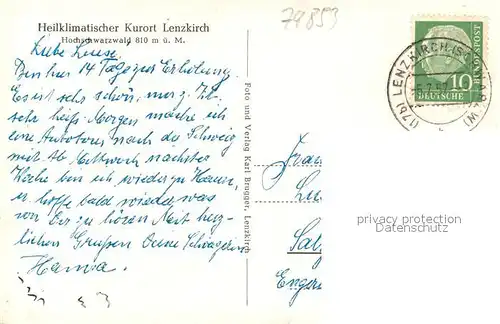 79853
Heilklimatischer Kurort Lenzkirch
Hochschwarzwald 810 m ü. M.
Liebe Luise
Bin hier 14 Tage zur Erholung.
Es ist sehr schön, nur z. Zt.
sehr heiß. Morgen mache ich
eine Autotour nach der Schweiz
mit. Ab Mittwoch nächster
Woche bin ich wieder zu Hause,
hoffe bald wieder was
von Dir zu hören. Mit herz-
lichen Grüßen Deine Schwägerin
Hanna
Foto und Verlag Karl Brugger, Lenzkirch
(17b) LENZKIRCH (SCHWARZW)
DEUTSCHE BUNDESPOST
10
Frau
Sal
Enger
privacy protection
Datenschutz